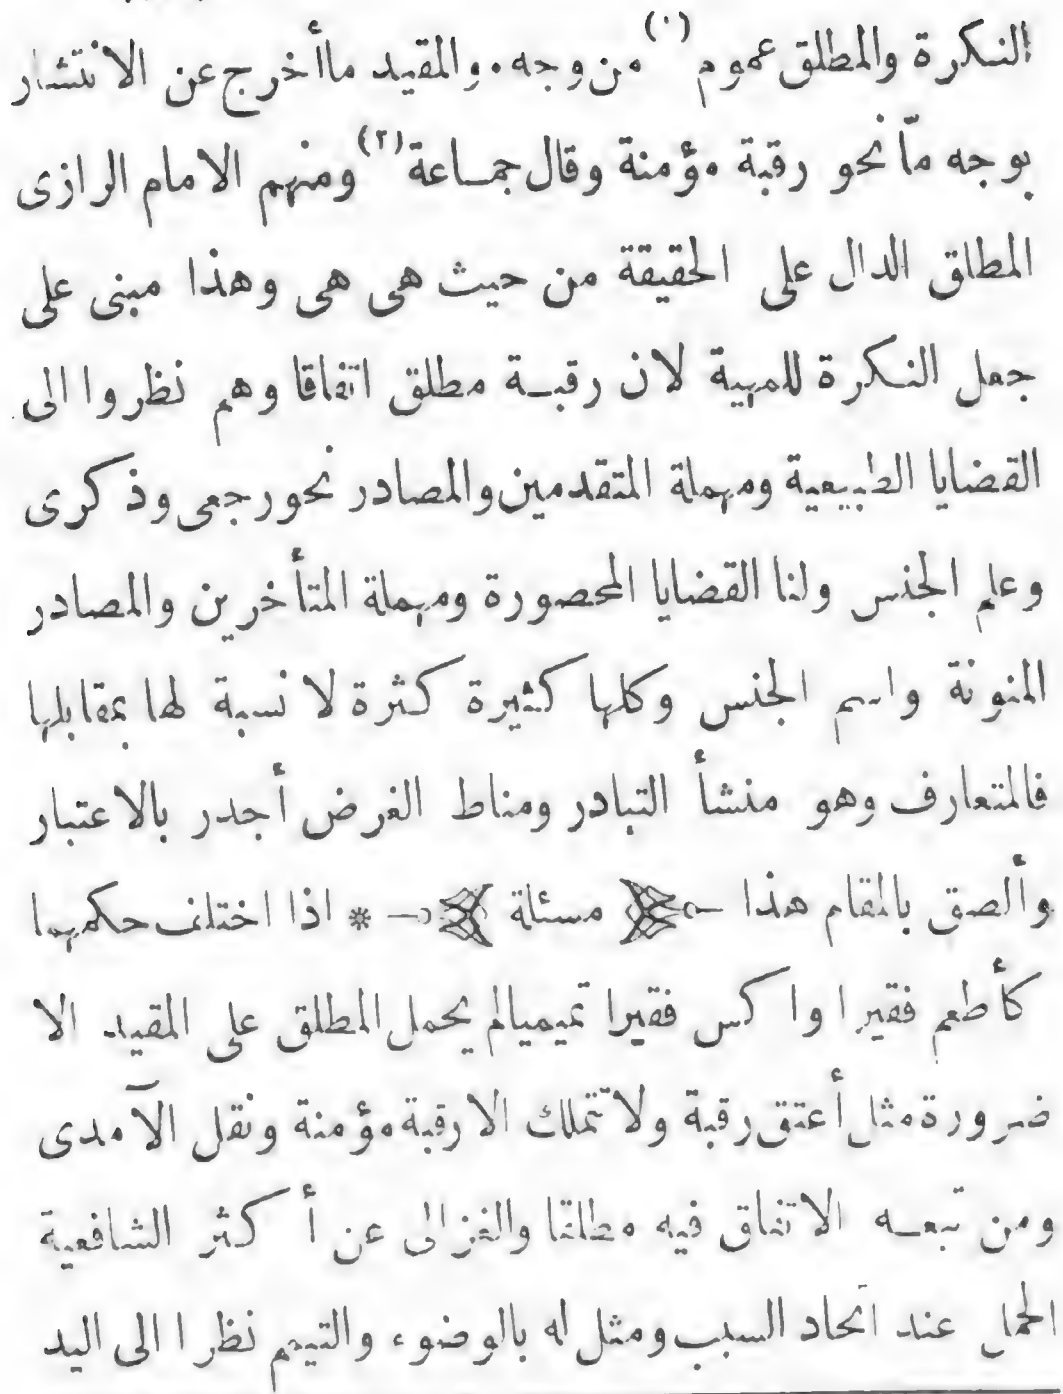 النكرة والمطلق عموم (١) من وجه. والمقيد ماأخرج عن الانتشار
بوجه مّا نحو رقبة مؤمنة وقال جماعة (٢) ومنهم الامام الرازى
المطلق الدال على الحقيقة من حيث هى هى وهذا مبنى على
جعل النكرة للمهية لان رقبة مطلق اتفاقا وهم نظروا الى
القضايا الطبيعية ومهملة المتقدمين والمصادر نحو رجعى وذكرى
وعلم الجنس ولنا القضايا المحصورة ومهملة المتأخرين والمصادر
المنونة واسم الجنس وكلها كثيرة كثرة لا نسبة لها بمقابلها
فالمتعارف وهو منشأ التبادر ومناط الغرض أجدر بالاعتبار
وألصق بالمقام هذا مسئلة * اذا اختلف حكمهما
كأطعم فقيرا واكس فقيرا تميميا لم يحمل المطلق على المقيد الا
ضرورة مثل أعتق رقبة ولا تتملك الا رقبة مؤمنة ونقل الآمدى
ومن تبعه الاتفاق فيه مطلقا والغزالى عن أكثر الشافعية
الحمل عند اتحاد السبب ومثل له بالوضوء والتيمم نظرا الى اليد